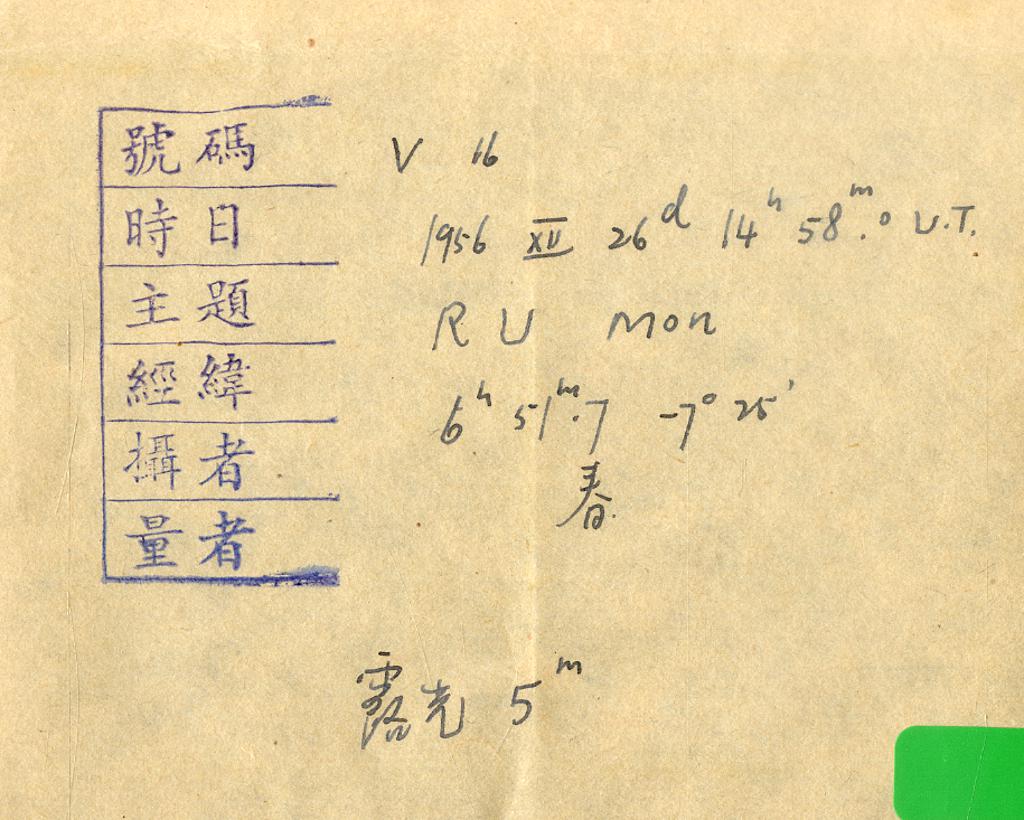 號碼 V 16
時日 1956 XII 26ᵈ 14ʰ 58ᵐ.0 U.T.
主題 RU Mon
經緯 6ʰ 51ᵐ.7 -7° 25'
攝者 春
量者
露光 5ᵐ